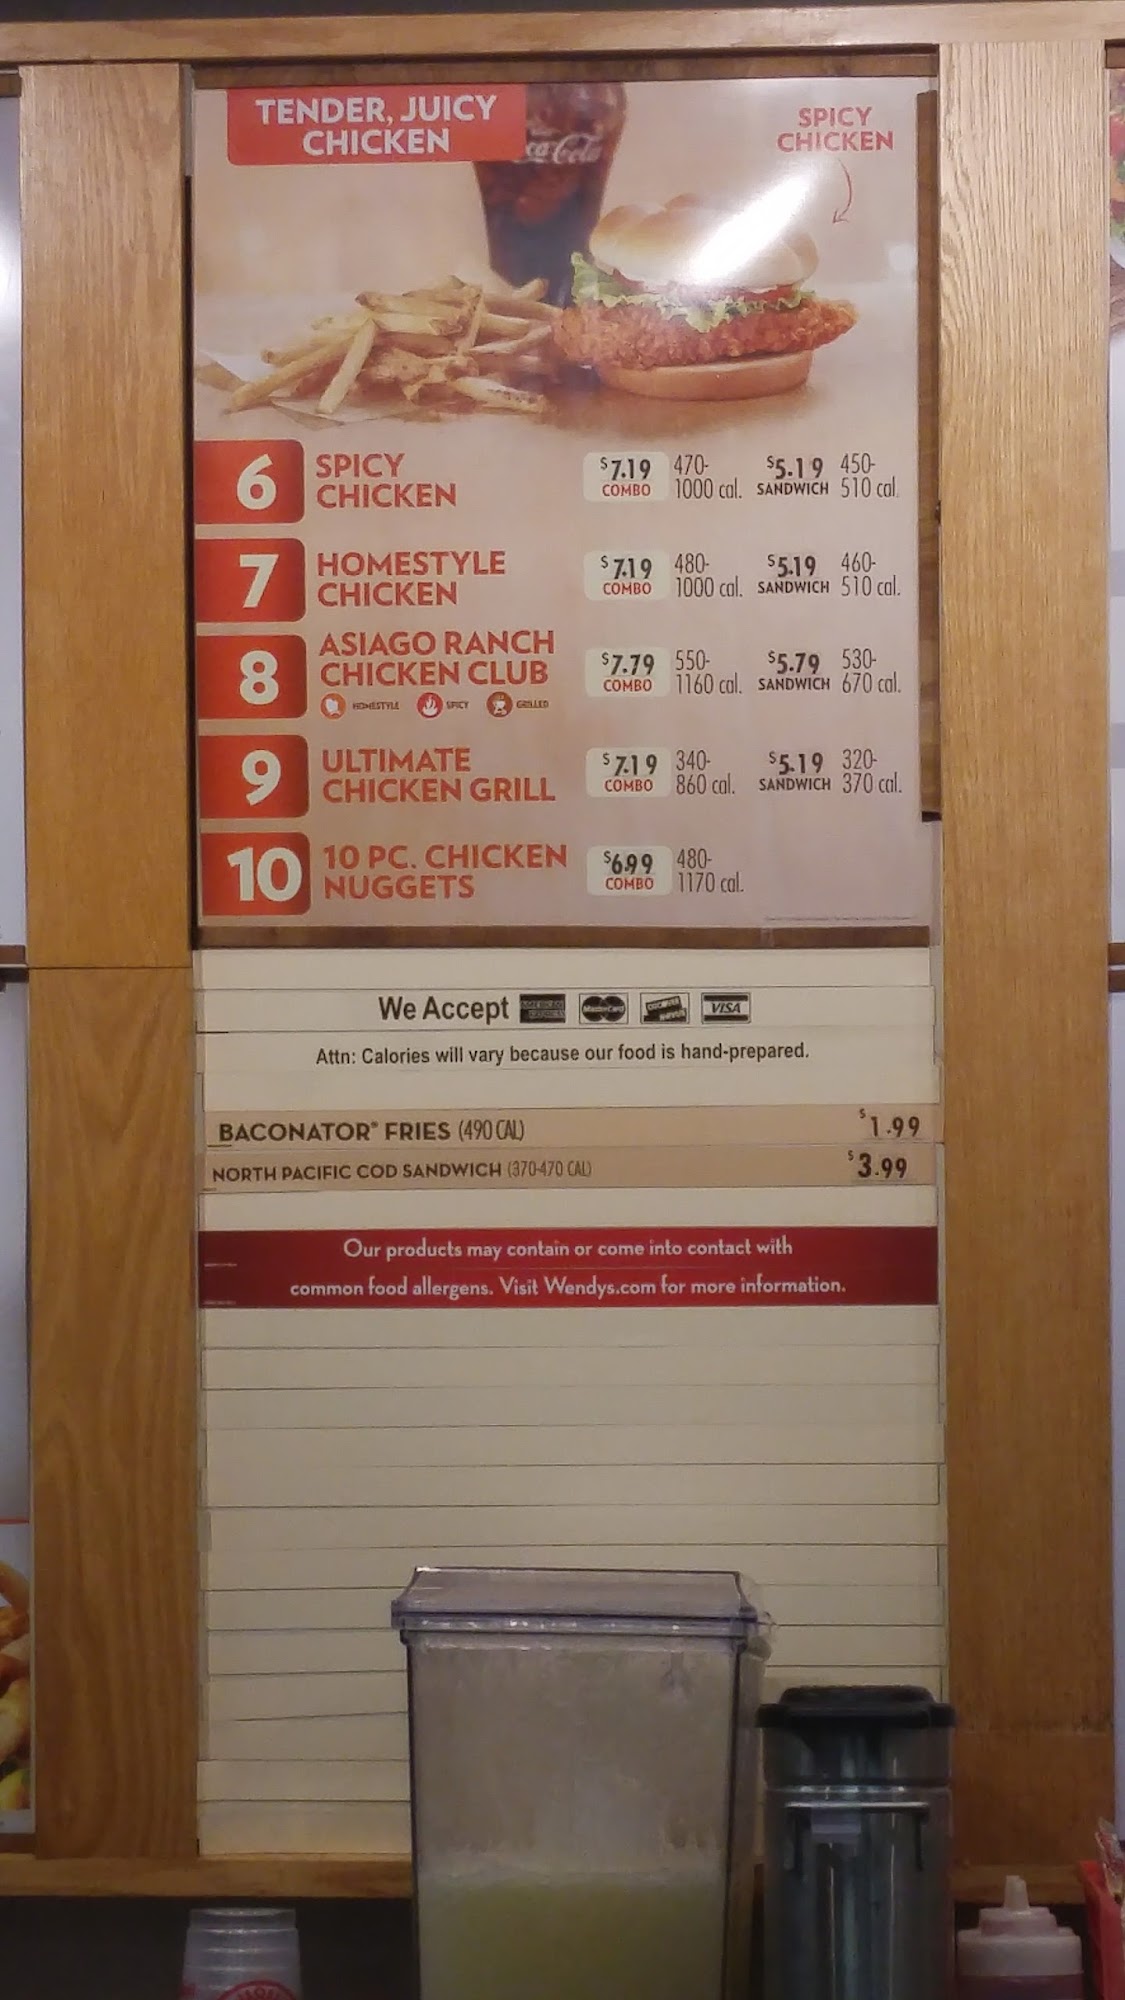 TENDER, JUICY
CHICKEN
SPICY
CHICKEN
6 SPICY CHICKEN $7.19 COMBO 470-1000 cal. $5.19 SANDWICH 450-510 cal.
7 HOMESTYLE CHICKEN $7.19 COMBO 480-1000 cal. $5.19 SANDWICH 460-510 cal.
8 ASIAGO RANCH CHICKEN CLUB $7.79 COMBO 550-1160 cal. $5.79 SANDWICH 530-670 cal.
HOMESTYLE SPICY GRILLED
9 ULTIMATE CHICKEN GRILL $7.19 COMBO 340-860 cal. $5.19 SANDWICH 320-370 cal.
10 10 PC. CHICKEN NUGGETS $6.99 COMBO 480-1170 cal.
We Accept AMERICAN EXPRESS MasterCard DISCOVER VISA
Attn: Calories will vary because our food is hand-prepared.
BACONATOR® FRIES (490 CAL) $1.99
NORTH PACIFIC COD SANDWICH (370-470 CAL) $3.99
Our products may contain or come into contact with
common food allergens. Visit Wendys.com for more information.